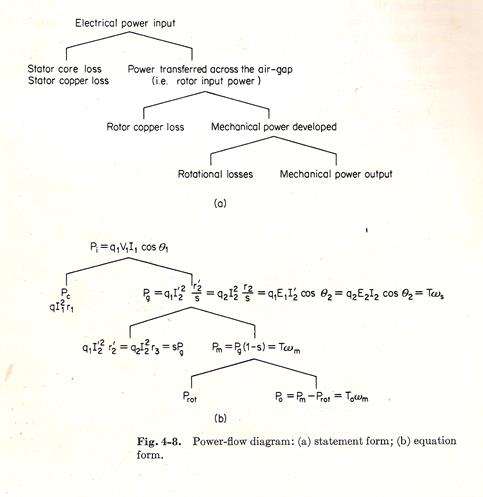 Electrical power input
Stator core loss Power transferred across the air-gap
Stator copper loss (i.e. rotor input power)
Rotor copper loss Mechanical power developed
Rotational losses Mechanical power output
(a)
Pᵢ = q₁V₁I₁ cos θ₁
P_c P_g = q₁I₂'² r₂'/s = q₂I₂² r₂/s = q₁E₁I₂' cos θ₂ = q₂E₂I₂ cos θ₂ = Tω_s
qI₁²r₁
q₁I₂'² r₂' = q₂I₂²r₃ = sP_g P_m = P_g(1-s) = Tω_m
P_rot P_o = P_m - P_rot = T_oω_m
(b)
Fig. 4-8. Power-flow diagram: (a) statement form; (b) equation
form.